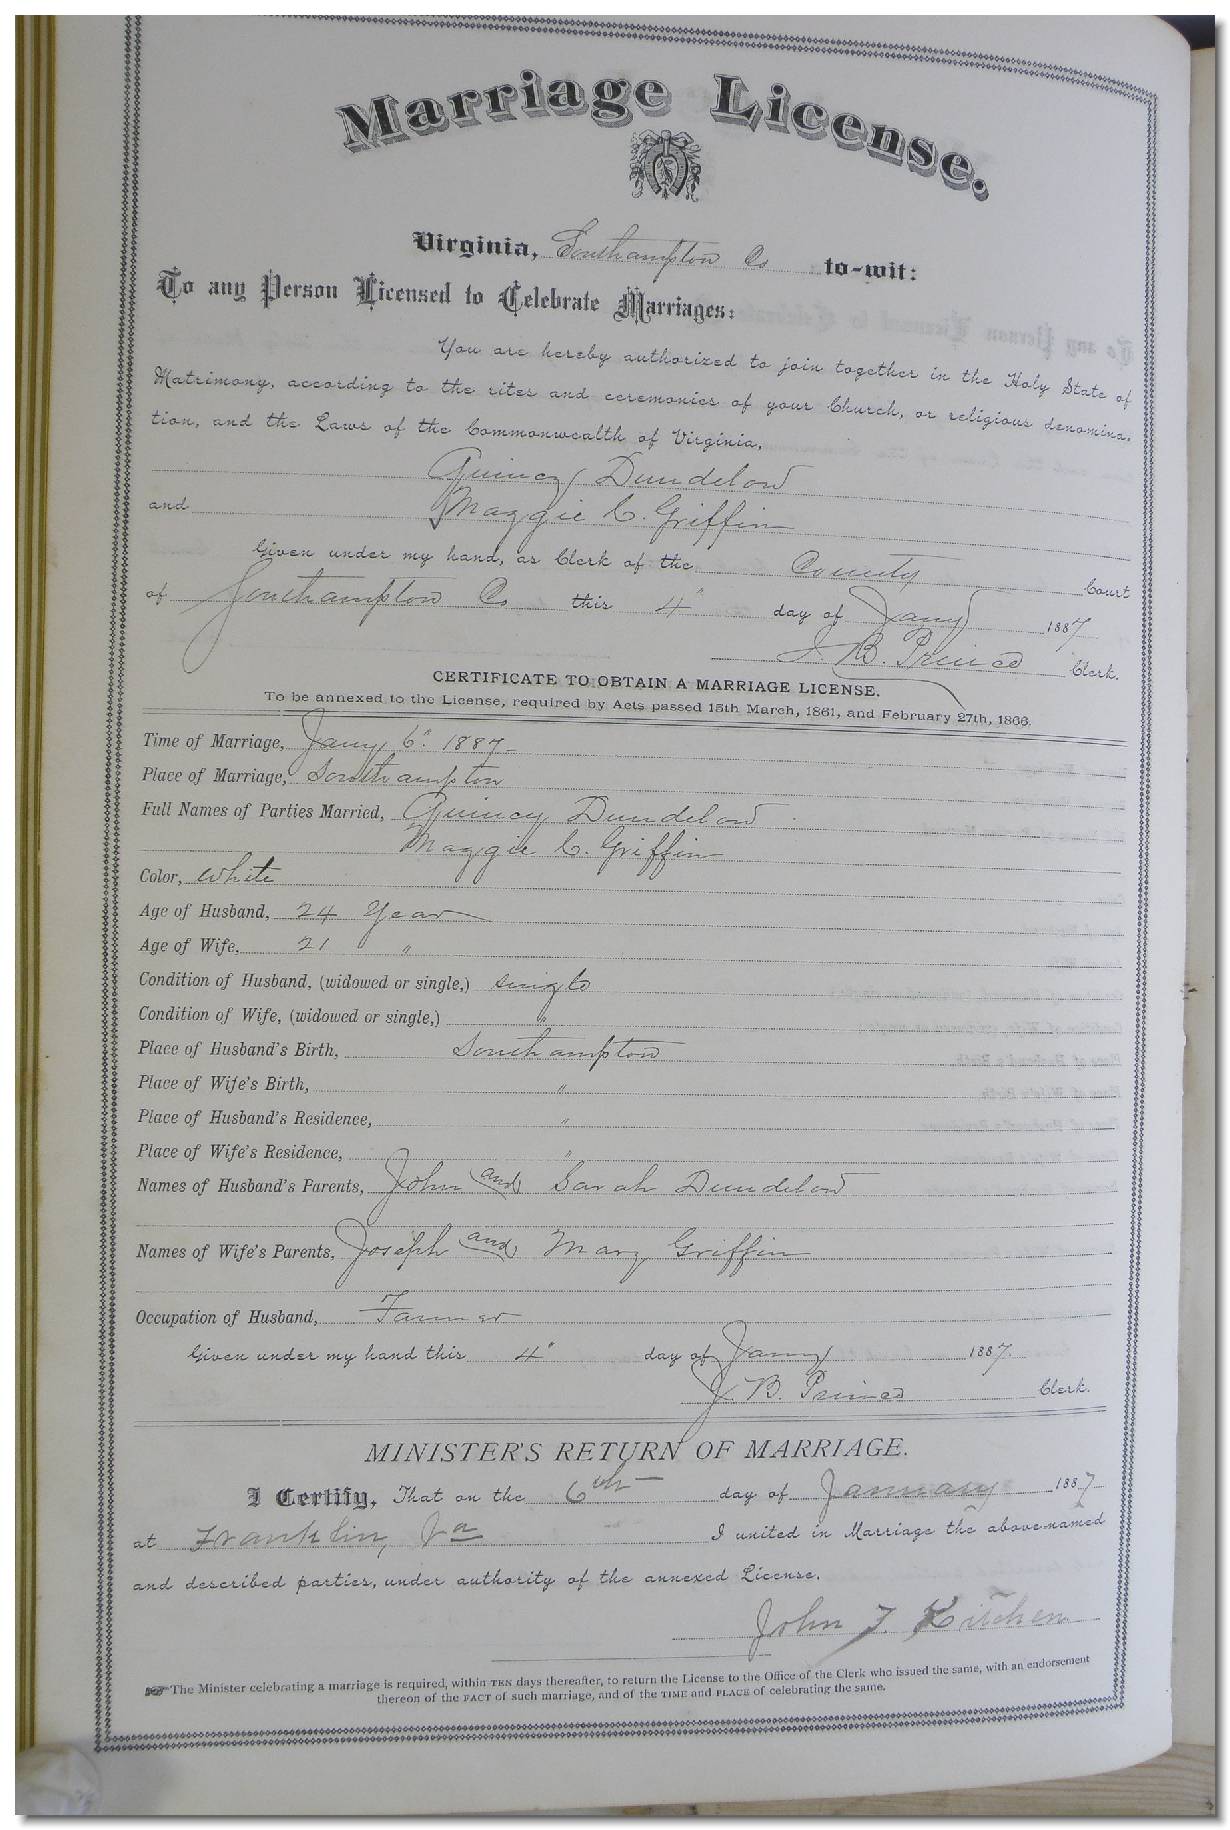 Marriage License.
Virginia, Southampton Co to-wit:
To any Person Licensed to Celebrate Marriages:
You are hereby authorized to join together in the Holy State of
Matrimony, according to the rites and ceremonies of your Church, or religious denomina-
tion, and the Laws of the Commonwealth of Virginia,
Quincy Dundelow
and Maggie C. Griffin
Given under my hand, as Clerk of the County Court
of Southampton Co this 4" day of Jany 1887
J. B. Prince Clerk.
CERTIFICATE TO OBTAIN A MARRIAGE LICENSE.
To be annexed to the License, required by Acts passed 15th March, 1861, and February 27th, 1866.
Time of Marriage, Jany 6" 1887
Place of Marriage, Southampton
Full Names of Parties Married, Quincy Dundelow
Maggie C. Griffin
Color, White
Age of Husband, 24 Year
Age of Wife, 21 "
Condition of Husband, (widowed or single,) single
Condition of Wife, (widowed or single,) "
Place of Husband's Birth, Southampton
Place of Wife's Birth, "
Place of Husband's Residence, "
Place of Wife's Residence, "
Names of Husband's Parents, John and Sarah Dundelow
Names of Wife's Parents, Joseph and Mary Griffin
Occupation of Husband, Farmer
Given under my hand this 4" day of Jany 1887.
J. B. Prince Clerk.
MINISTER'S RETURN OF MARRIAGE.
I Certify, That on the 6th day of January 1887
at Franklin, Va I united in Marriage the above-named
and described parties, under authority of the annexed License.
John F. Kitchen
The Minister celebrating a marriage is required, within TEN days thereafter, to return the License to the Office of the Clerk who issued the same, with an endorsement
thereon of the FACT of such marriage, and of the TIME and PLACE of celebrating the same.